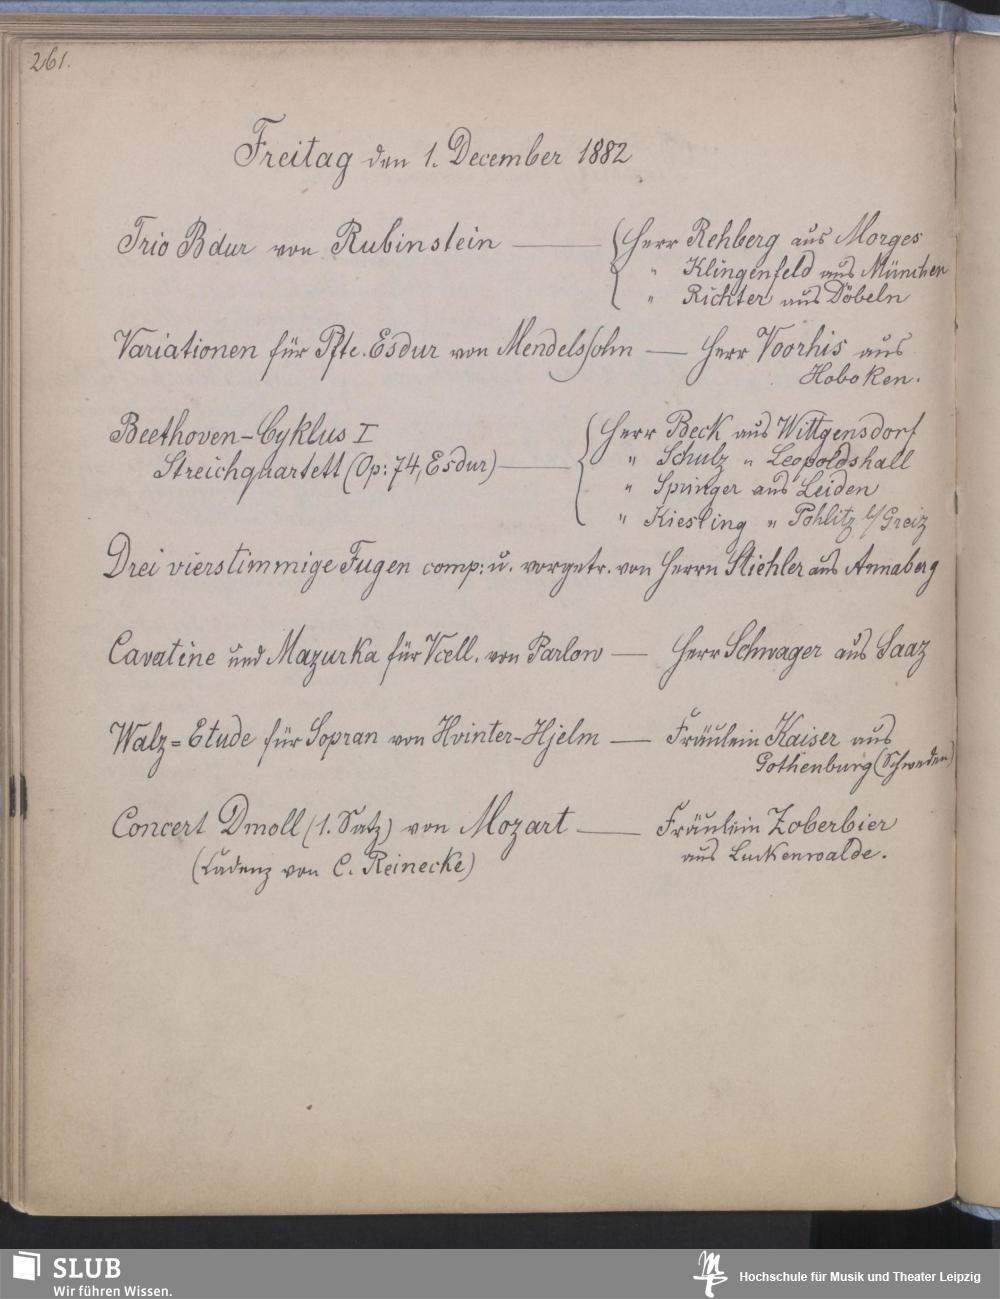 261.
Freitag den 1. December 1882
Trio Bdur von Rubinstein — Herr Rehberg aus Morges
" Klingenfeld aus München
" Richter aus Döbeln
Variationen für Pfte. Esdur von Mendelssohn — Herr Voorhis aus
Hoboken.
Beethoven-Cyklus I
Streichquartett (Op: 74, Esdur) — Herr Beck aus Wittgensdorf
" Schulz " Leopoldshall
" Springer aus Leiden
" Kiesling " Pohlitz b/Greiz
Drei vierstimmige Fugen comp: u. vorgetr. von Herrn Stiehler aus Annaberg
Cavatine und Mazurka für Vcell. von Parlow — Herr Schwager aus Saaz
Walz=Etude für Sopran von Hvinter-Hjelm — Fräulein Kaiser aus
Gothenburg (Schweden)
Concert Dmoll (1. Satz) von Mozart — Fräulein Zoberbier
(Cadenz von C. Reinecke) aus Luckenwalde.
SLUB
Wir führen Wissen.
Hochschule für Musik und Theater Leipzig